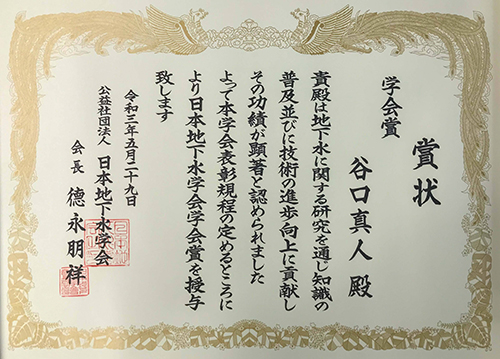 賞状
学会賞
谷口真人殿
貴殿は地下水に関する研究を通じ知識の
普及並びに技術の進歩向上に貢献し
その功績が顕著と認められました
よって本学会表彰規程の定めるところに
より日本地下水学会学会賞を授与
致します
令和三年五月二十九日
公益社団法人 日本地下水学会
会長 德永朋祥